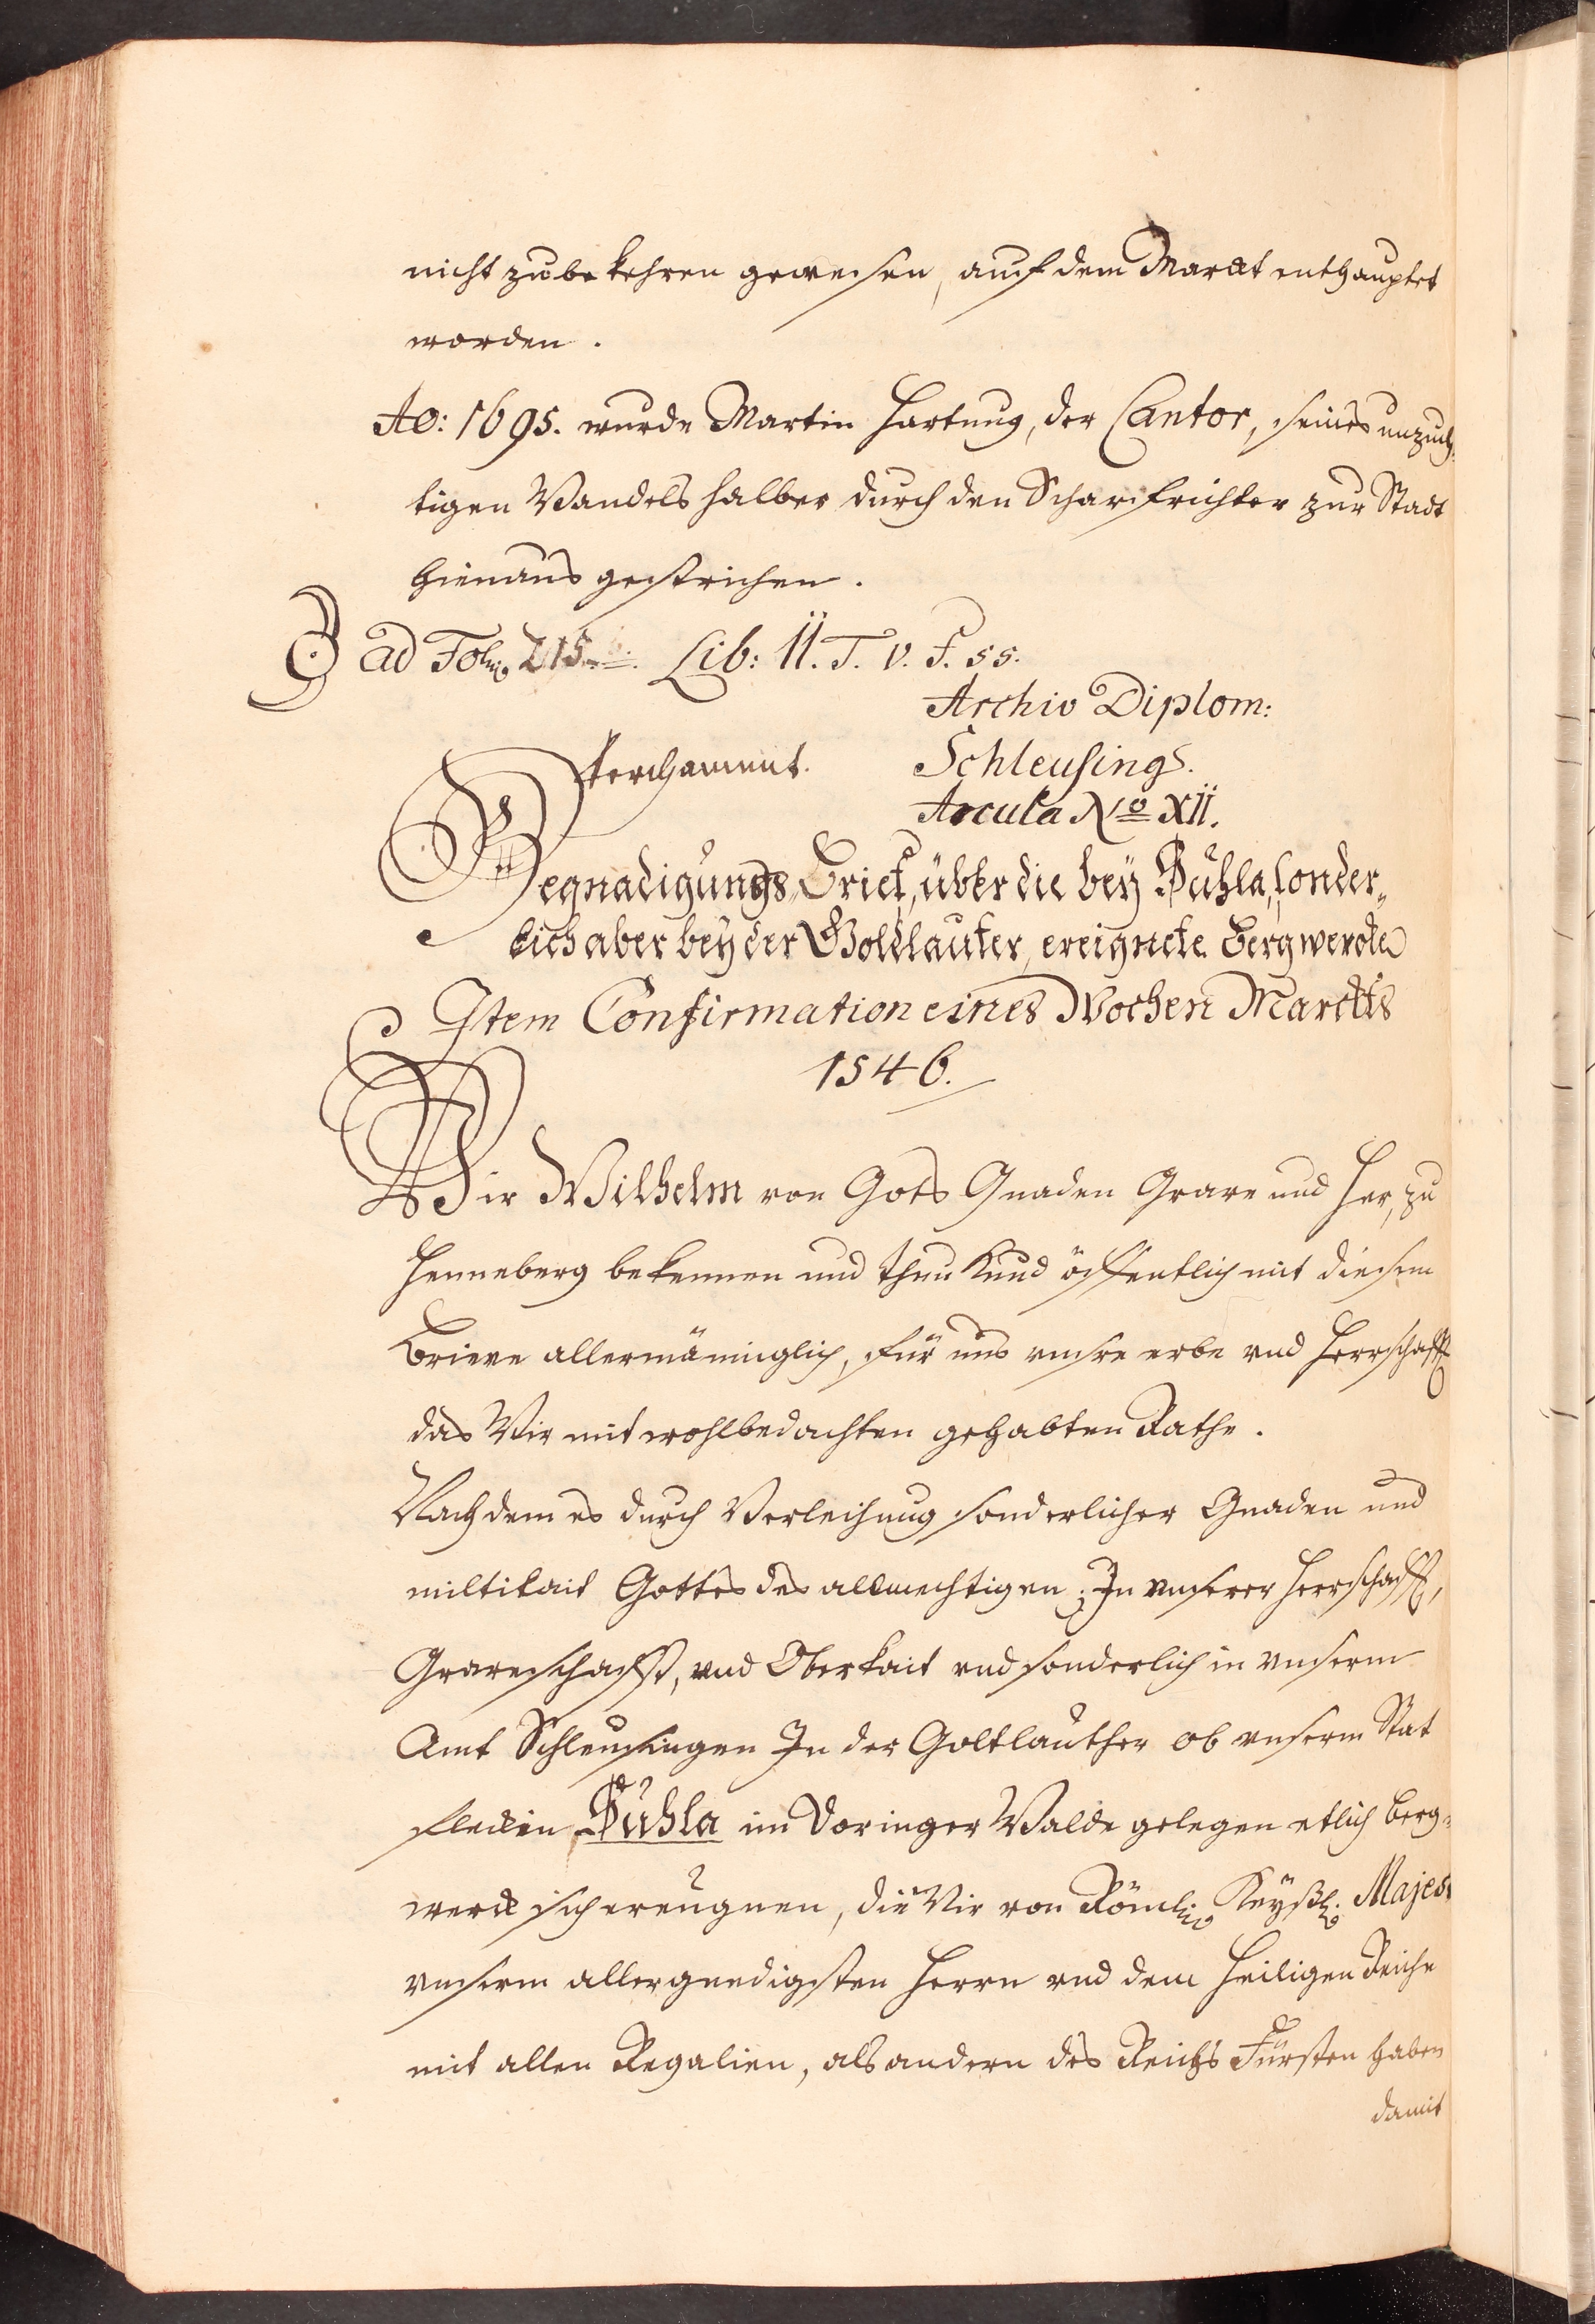 nicht zubekehren gewesen, auf dem Marckt enthauptet
worden.
Ao: 1695. wurde Martin Hartung, der Cantor, seines unzüch-
tigen Wandels halber durch den Scharfrichter zur Stadt
hienaus gestrichen.
ad Fol. 215. Lib: II. T. V. f. 55.
Archiv Diplom:
Perchament. Schleusing.
Arcula No XII.
Begnadigungs Brief, über die bey Suhla, sonder-
lich aber bey der Goldlauter, ereignete Bergwercke
Item Confirmation eines Wochen Marckts
1546.
Wir Wilhelm von Gots Gnaden Grave und Her, zu
Henneberg bekennen und thun Kund öffentlich mit diesem
Brieve allermänniglich, für uns vnsre erbe vnd Herrschafft
das Wir mit wohlbedachten gehabten Rathe.
Nachdem es durch Verleihung sonderlicher Gnaden und
miltikait Gottes des allmechtigen; In vnserer Herrschafft,
Graveschafft, vnd Oberkait vnd sonderlich in vnserm
Amt Schleusingen In der Goltlauther ob vnserm Stat
flecken Suhla im Doringer Walde gelegen etlich berg-
werck sich ereugnen, die Wir von Römli. Keyßl. Majest
vnserm allergnedigsten Herrn vnd dem Heiligen Reiche
mit allen Regalien, als andern des Reichs Fürsten haben
damit